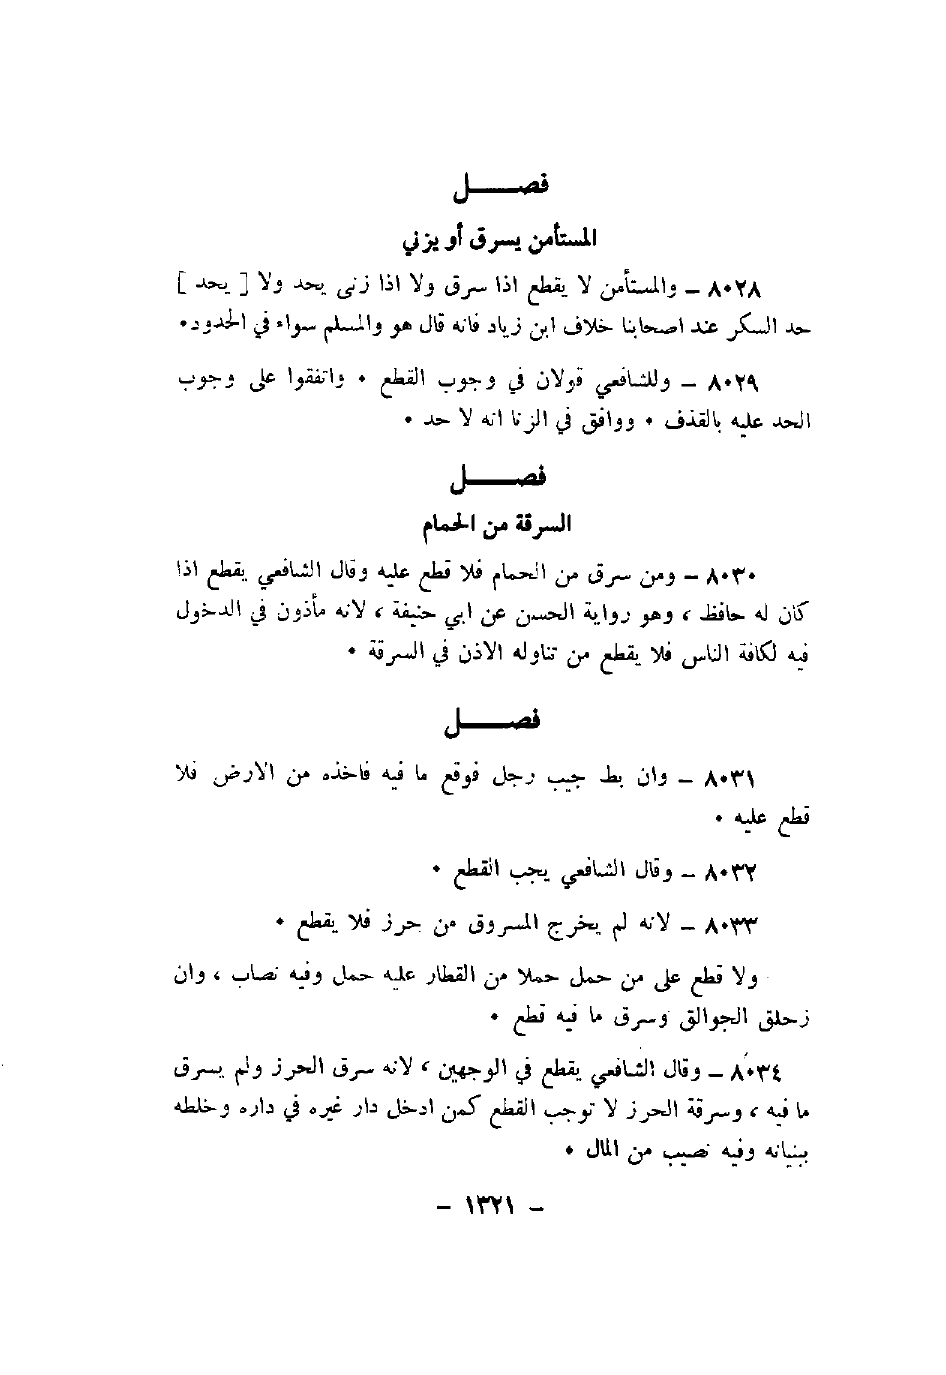 فصـــــل
المستأمن يسرق أو يزني
٨٠٢٨ – والمستأمن لا يقطع اذا سرق ولا اذا زنى يحد ولا [ يحد ]
حد السكر عند اصحابنا خلاف ابن زياد فانه قال هو والمسلم سواء في الحدود٠
٨٠٢٩ – وللشافعي قولان في وجوب القطع ٠ واتفقوا على وجوب
الحد عليه بالقذف ٠ ووافق في الزنا انه لا حد ٠
فصـــــل
السرقة من الحمام
٨٠٣٠ – ومن سرق من الحمام فلا قطع عليه وقال الشافعي يقطع اذا
كان له حافظ ، وهو رواية الحسن عن ابي حنيفة ، لانه مأذون في الدخول
فيه لكافة الناس فلا يقطع من تناوله الاذن في السرقة ٠
فصـــــل
٨٠٣١ – وان بط جيب رجل فوقع ما فيه فاخذه من الارض فلا
قطع عليه ٠
٨٠٣٢ – وقال الشافعي يجب القطع ٠
٨٠٣٣ – لانه لم يخرج المسروق من حرز فلا يقطع ٠
ولا قطع على من حمل حملا من القطار عليه حمل وفيه نصاب ، وان
زحلق الجوالق وسرق ما فيه قطع ٠
٨٠٣٤ – وقال الشافعي يقطع في الوجهين ، لانه سرق الحرز ولم يسرق
ما فيه ، وسرقة الحرز لا توجب القطع كمن ادخل دار غيره في داره وخلطه
ببنيانه وفيه نصيب من المال ٠
– ١٣٢١ –